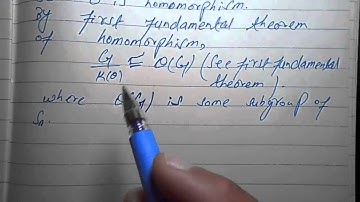 is homomorphism.
by first fundamental theorem
of homomorphism,
G/K(θ) ≅ θ(G) (see first fundamental
theorem).
where θ(G) is some subgroup of
Sn.